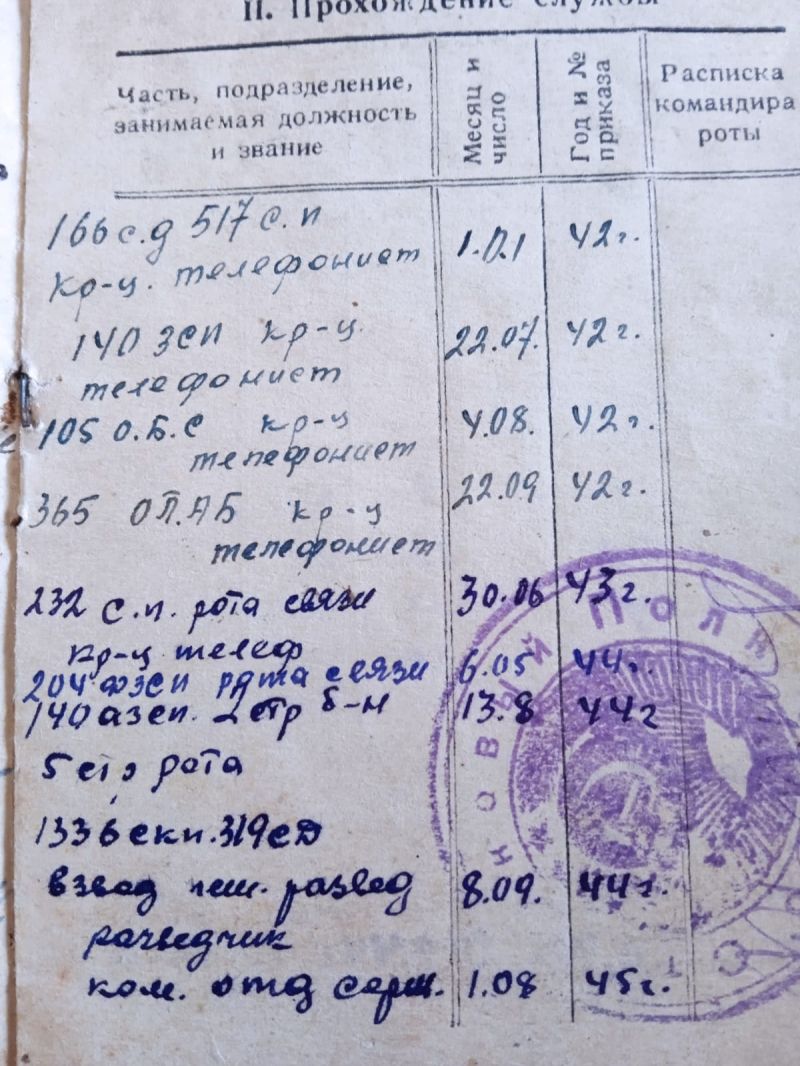 II. Прохождение службы
Часть, подразделение, занимаемая должность и звание
Месяц и число
Год и № приказа
Расписка командира роты
166 с.д 517 с.п
кр-ц. телефонист 1.01 42 г.
140 ЗСП кр-ц 22.07. 42 г.
телефонист
105 О.Б.С кр-ц 4.08. 42 г.
телефонист
365 ОП.АБ кр-ц 22.09 42 г.
телефонист
232 с.п. рота связи 30.06 43 г.
кр-ц телеф
204 фзсп рота связи 6.05 44 г.
140 азсп. 2 стр б-н 13.8 44 г
5 стр рота
1336 скп. 319 сд
взвод пеш. развед 8.09. 44 г.
разведчик
ком. отд серж. 1.08 45 г.
КОВЫЙ ПОЛК